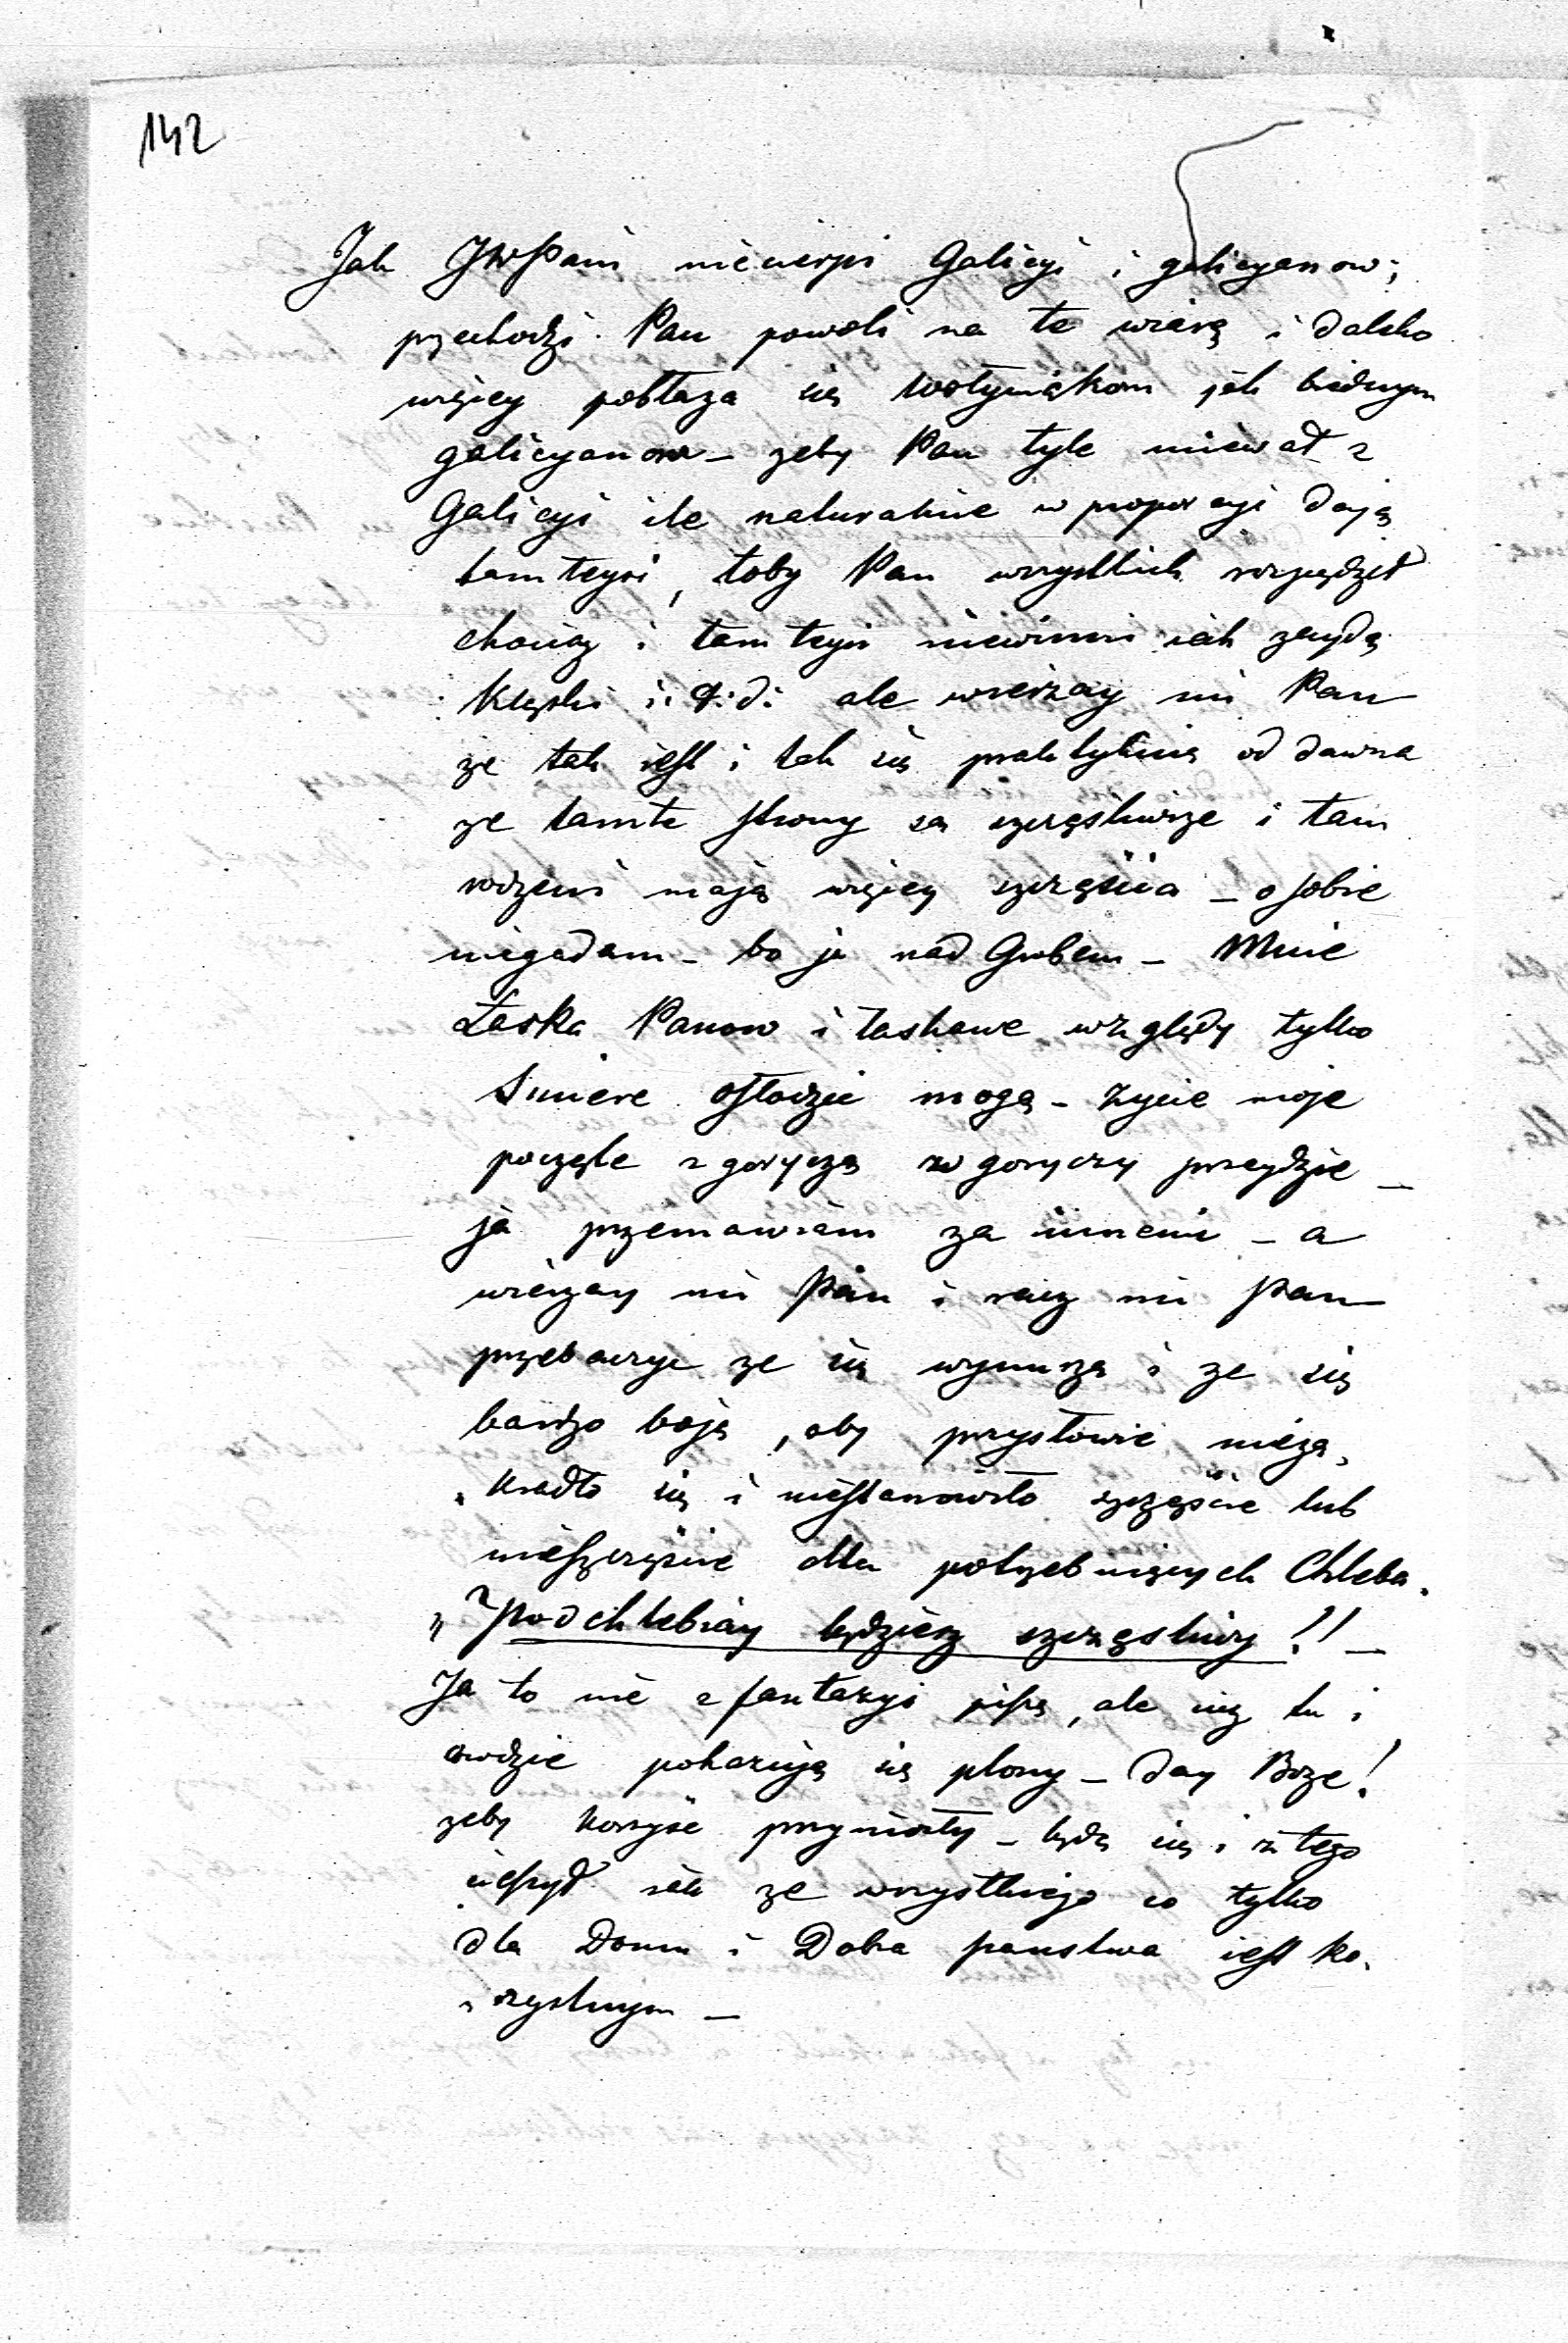 142
Jak JWPani niecierpi Galicyi i galicyanow;
przechodzi Pan powoli na te wiarę i daleko
więcey pobłaza się Wołyniakom jak biednym
galicyanow – zeby Pan tyle miewał z
Galicyi ile naturalnie w proporcyi dają
tamteysi, toby Pan wszystkich rozpędził
chociaz i tamteysi niewinni iak zayda
klęski i: t: d: ale wierzay mi Pan
ze tak iest i tak się praktykuie od dawna
ze tamte strony są szczęsliwsze i tam
rodzeni mają więcey szczęścia – o sobie
niegadam – bo ja nad Grobem – Mnie
Łaska Panow i łaskawe względy tylko
smierc osłodzic mogą – zycie moje
poczęte z goryczą w goryczy przeydzie –
ja przemawiam za innemi – a
wierzay mi Pan i racz mi Pan
przebaczyc ze się wynurzą i ze się
bardzo boję, aby przysłowie nieza,
„kradło się i niestanowiło szczęście lub
nieszczęście dla potrzebuiących Chleba.
„Podchlebiay będziesz szczęsliwy!! –
Ja to nie z fantazyi piszę, ale iuz tu i
owdzie pokazują się plony – day Boze!
zeby korzyśc przyniosły – będę się i z tego
cieszył iak ze wszystkiego co tylko
dla Domu i Dobra panstwa iest ko,
„rzystnym –